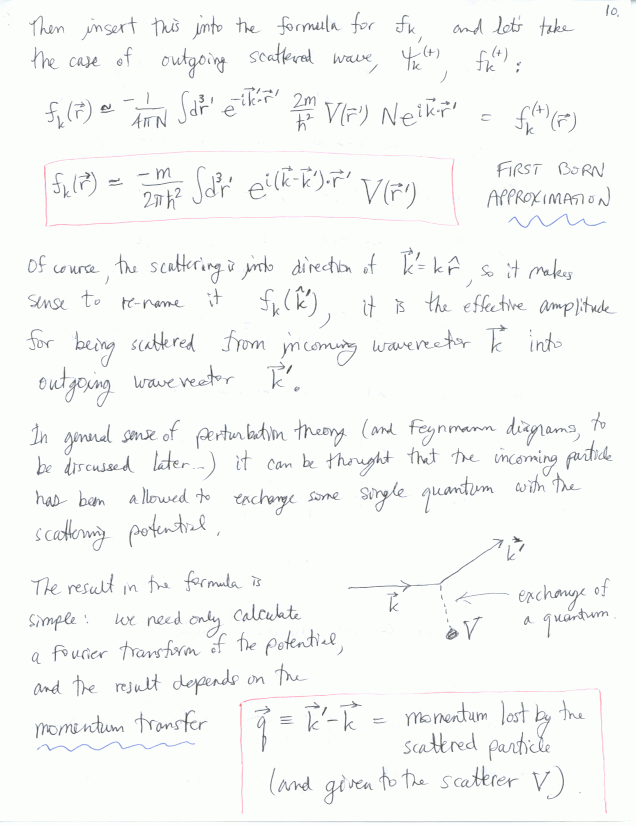 10.
Then insert this into the formula for fₖ, and let's take
the case of outgoing scattered wave, ψₖ⁽⁺⁾, fₖ⁽⁺⁾:
fₖ(r⃗) ≃ -1/(4πN) ∫d³r' e^{-ik⃗'·r⃗'} 2m/ħ² V(r⃗') N e^{ik⃗·r⃗'} = fₖ⁽⁺⁾(r⃗)
fₖ(r⃗) ≃ -m/(2πħ²) ∫d³r' e^{i(k⃗-k⃗')·r⃗'} V(r⃗')
FIRST BORN
APPROXIMATION
Of course, the scattering is into direction of k⃗' = k r̂, so it makes
sense to re-name it fₖ(k̂'), it is the effective amplitude
for being scattered from incoming wavevector k⃗ into
outgoing wavevector k⃗'.
In general sense of perturbation theory (and Feynmann diagrams, to
be discussed later...) it can be thought that the incoming particle
has been allowed to exchange some single quantum with the
scattering potential.
The result in the formula is
simple: we need only calculate
a Fourier transform of the potential,
and the result depends on the
momentum transfer
k⃗
k⃗'
V
exchange of
a quantum.
q⃗ ≡ k⃗'-k⃗ = momentum lost by the
scattered particle
(and given to the scatterer V).